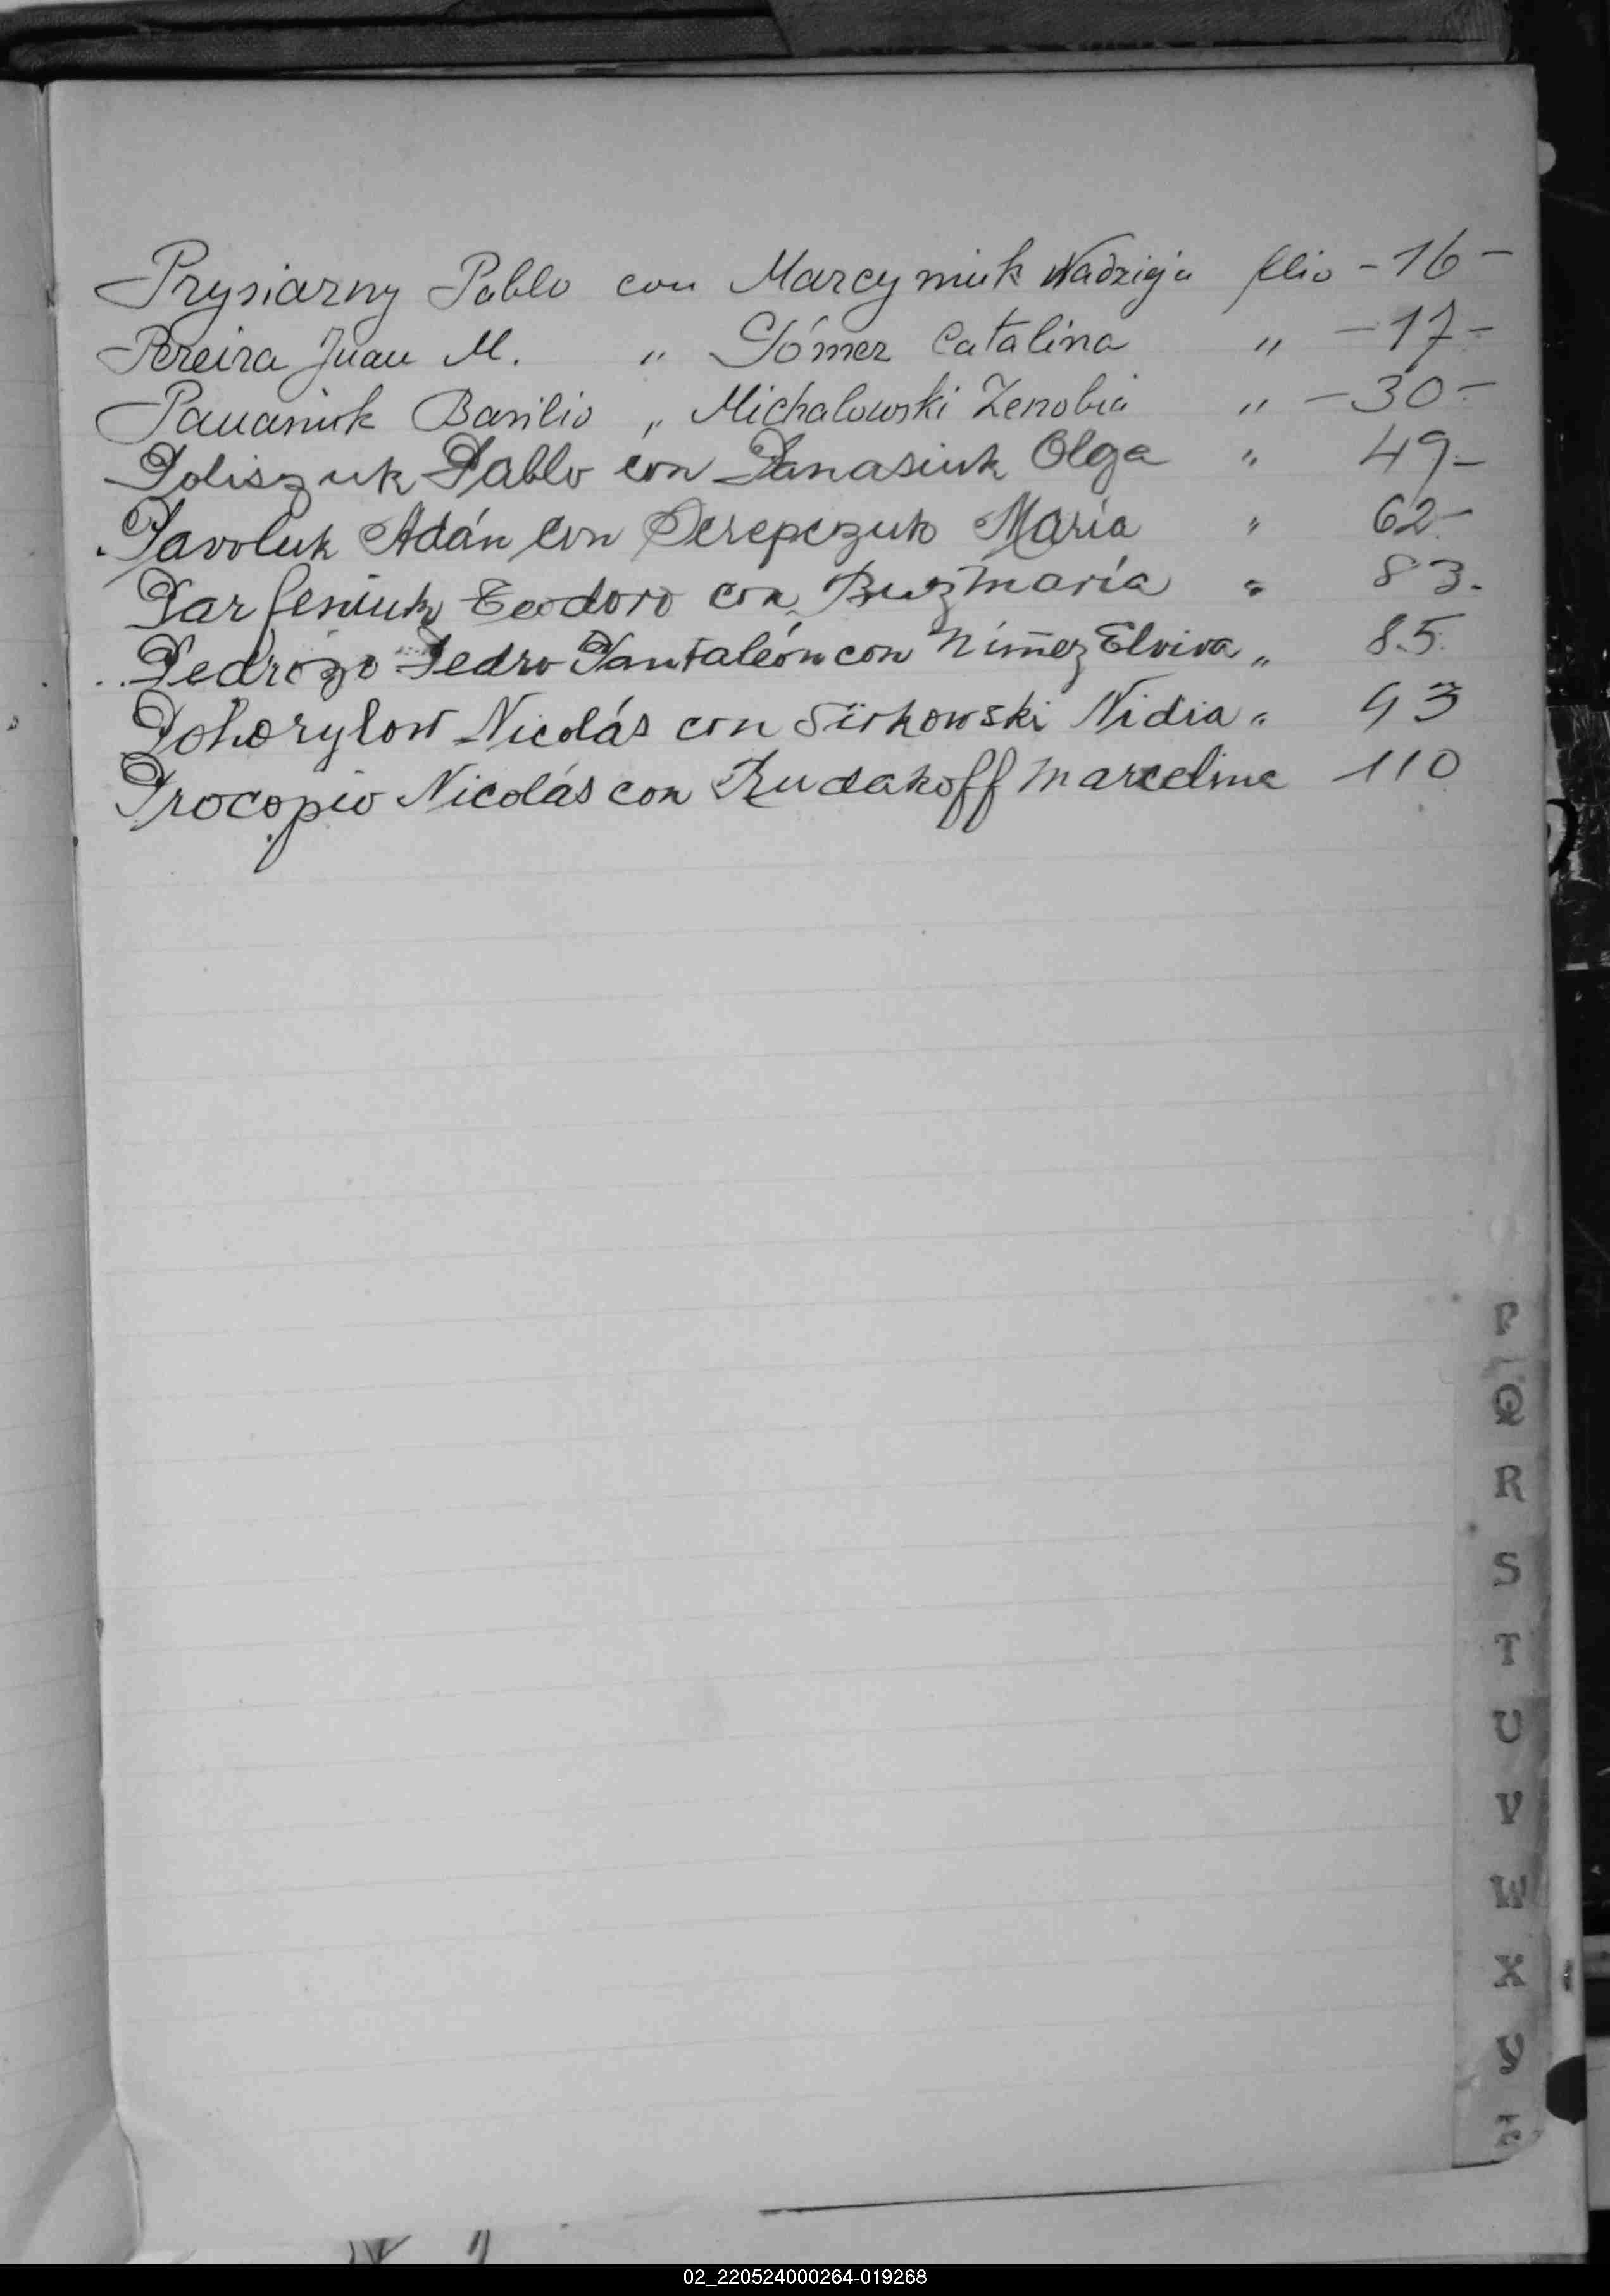 Prysiarny Pablo con Marcyniuk Nadzieja flio - 16 -
Pereira Juan M. " Gómez Catalina " - 17 -
Panasiuk Basilio " Michalowski Zenobia " - 30 -
Poliszuk Pablo con Panasiuk Olga " 49 -
Pavoluk Adán con Serepczuk María " 62 -
Parfeniuk Teodoro con Buz María " 83.
Pedrozo Pedro Pantaleón con Núñez Elvira " 85.
Pohorylow Nicolás con Sirkowski Nidia " 93
Procopio Nicolás con Rudakoff Marcelina 110
P
Q
R
S
T
U
V
W
X
Y
Z
02_220524000264-019268